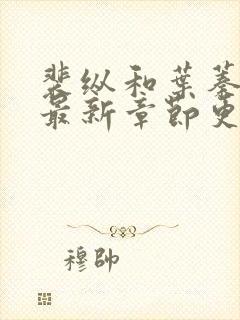 裴纵和葉蓁
最新章節更
穆帥